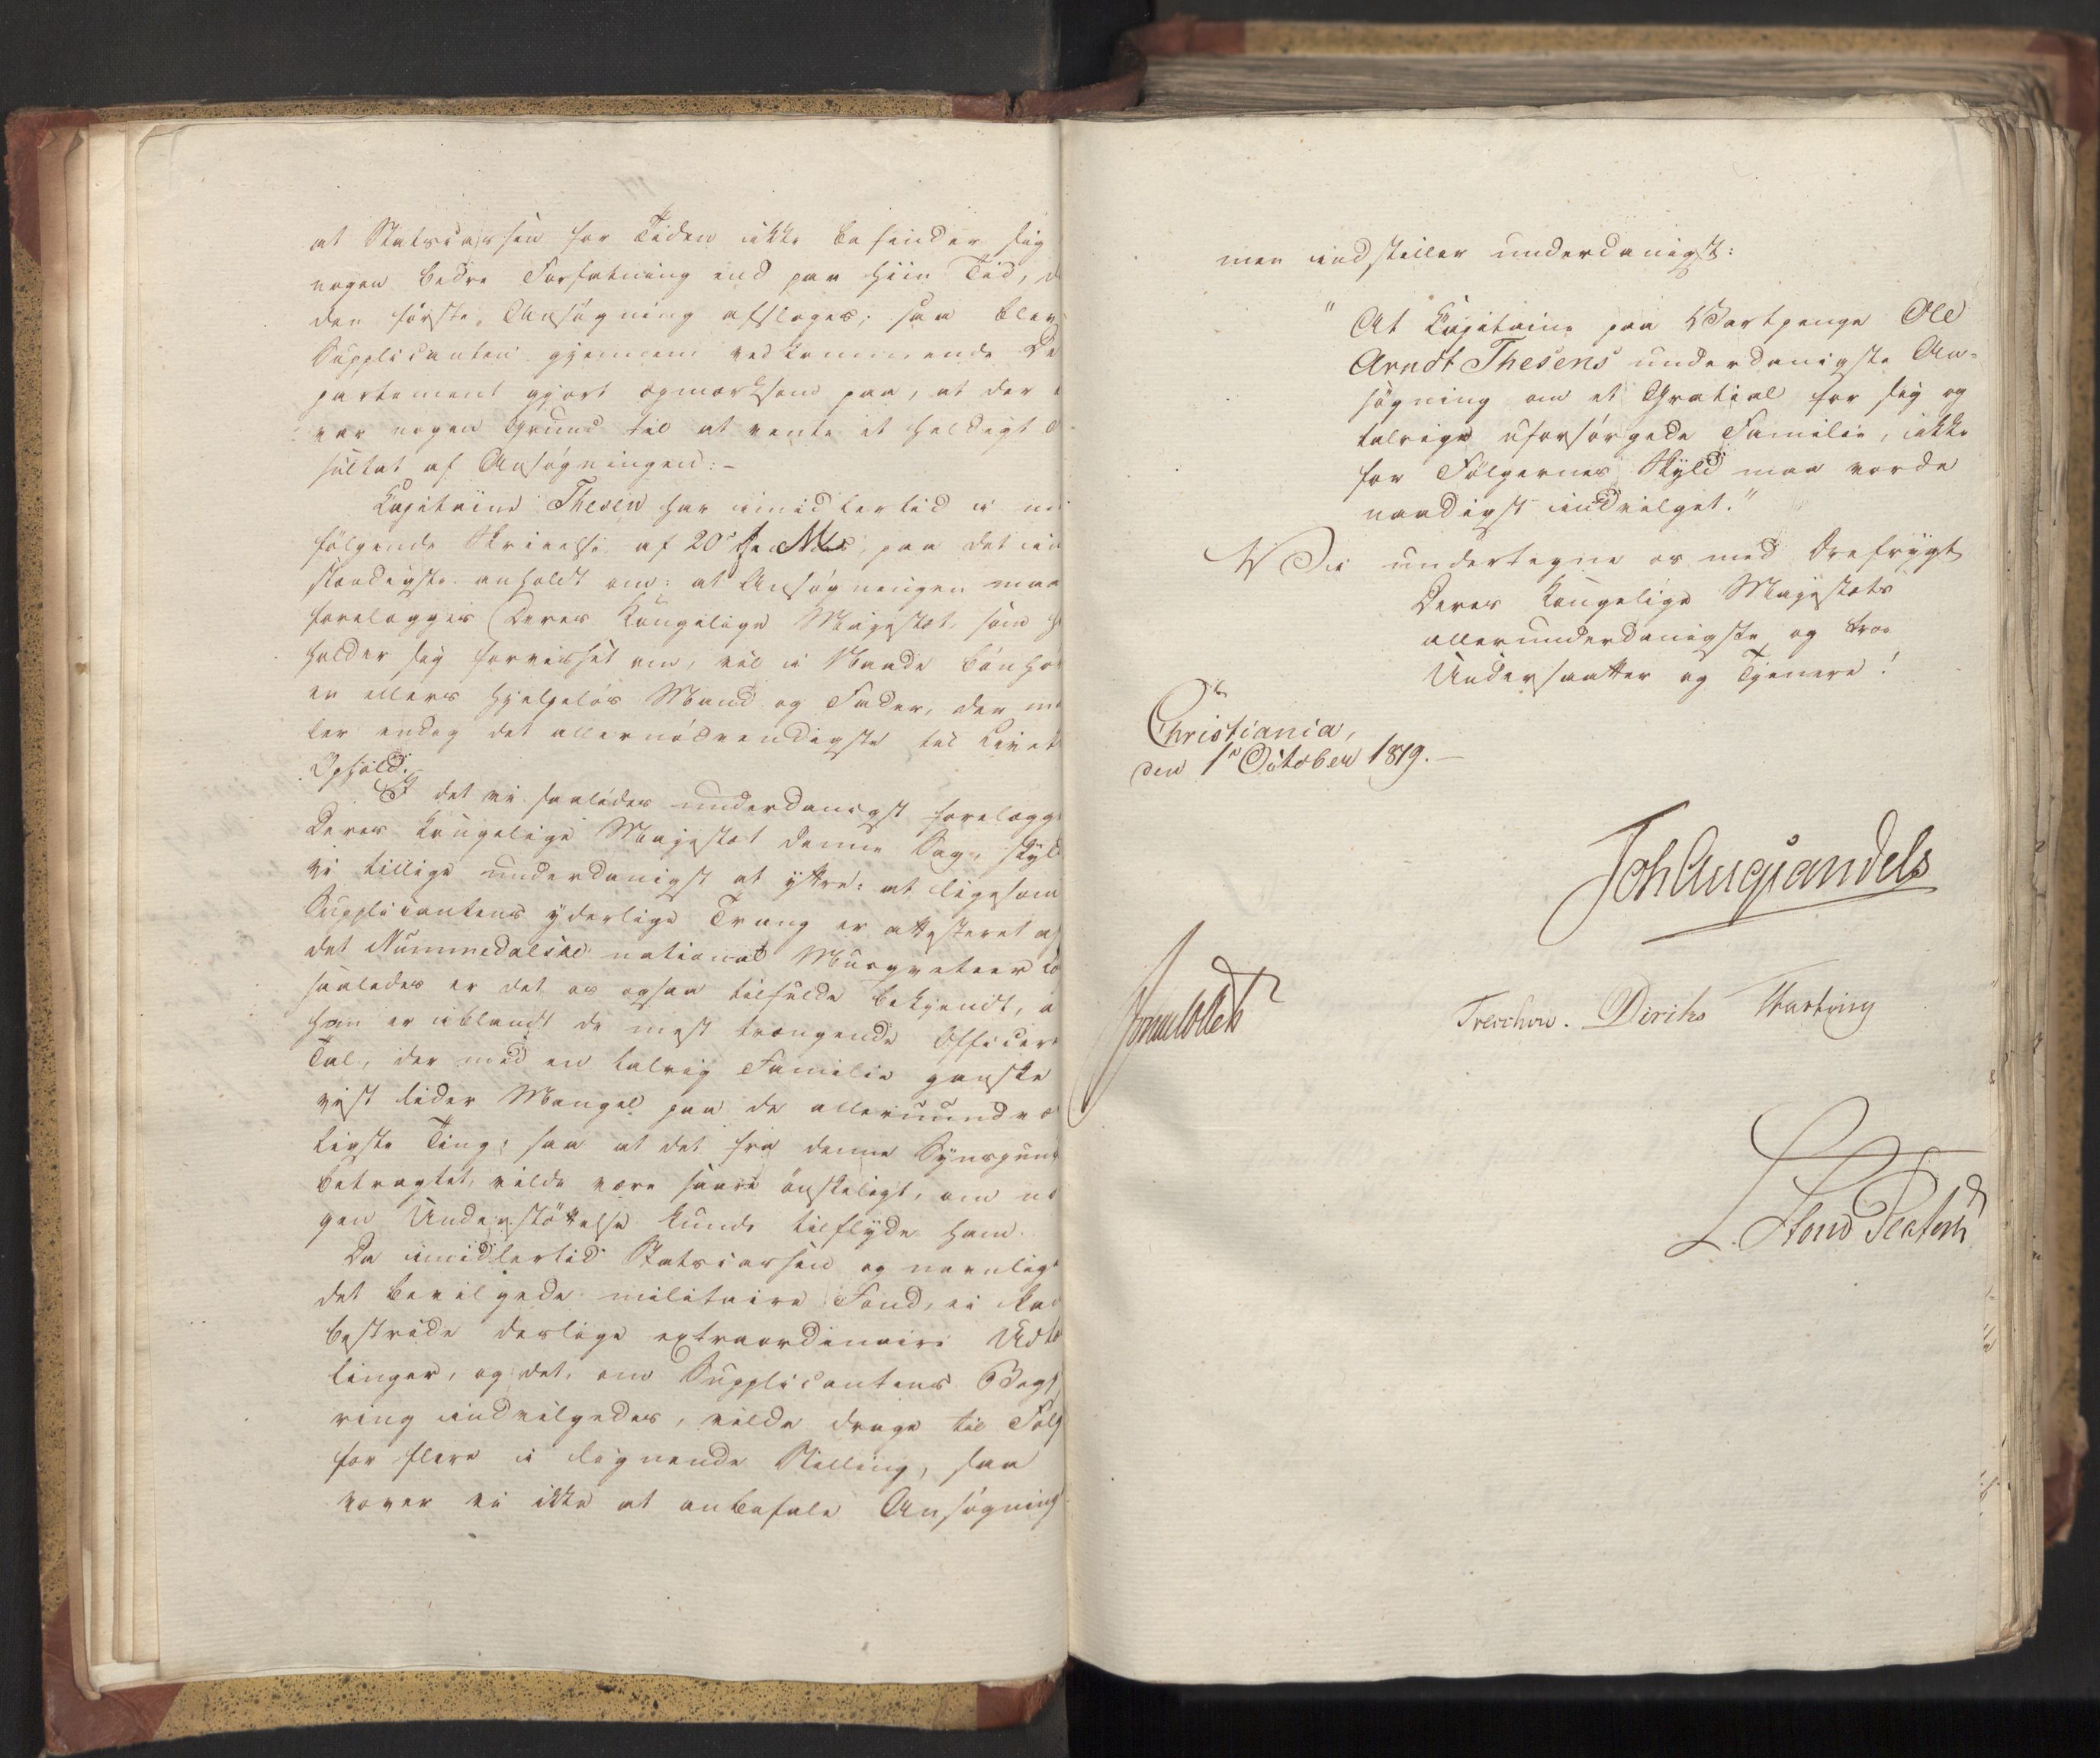 at Statscassen for Tiden ikke befinder sig
nogen bedre Forfatning end paa hiin Tid, d
den første Ansøgning afsloges; saa blev
Supplicanten gjennem vedkommende De
partement gjort opmærksom paa, at der
var nogen Grund til at vente et heldigt
sultat af Ansøgningen:-
Capitaine Thesen har imidlertid i
følgende Skrivelse af 20de paa det in
stændigste anholdt om: at Ansøgningen maa
forelægges Deres Kongelige Majestæt, som h
holder sig forvisset om, vil i Naade bønhø
en ellers hjelpeløs Mand og Fader, der
ler endog det allernødvendigste til Livet
Ophold.-
I det vi saaledes underdanigst forelægge
Deres Kongelige Majestæt denne Sag, skyld
vi tillige underdanigst at yttre: at ligesom
Supplicantens yderlige Trang er attesteret af
det Nummedalske national Musqveteer Co
saaledes er det os ogsaa tilfulde bekjendt, a
han er iblandt de mest trængende Officere
Tal, der med en talrig Familie ganske
vist lider Mangel paa de alleruundvæ
ligste Ting; saa at det fra denne Synspunk
betragtet, vilde være saare ønskeligt, om no
gen Understøttelse kunde tilflyde ham.
Da imidlertid Statscassen og navnligt
det bevilgede militaire Fond, ei kan
bestride deslige extraordinaire Udta
linger, og det, om Supplicantens Begj
ring indvilgedes, vilde drage til Følg
for flere i lignende Stilling, saa
vover vi ikke at anbefale Ansøgning
men indstiller underdanigst:
"At Capitaine paa Vartpenge Ole
Arndt Thesens underdanigste An-
søgning om et Gratial for sig og
talrige uforsørgede Familie, ikke
for Følgernes Skyld maa vorde
naadigst indvilget."
Vi undertegne os med Ærefrygt
Deres Kongelige Majestæts
allerunderdanigste og troe
Undersaatter og Tjenere!
Christiania,
den 1e October 1819.-
Joh Aug Sandels
Sommerfeldt
Treschow. Diriks Fasting
L. Stoud Platou